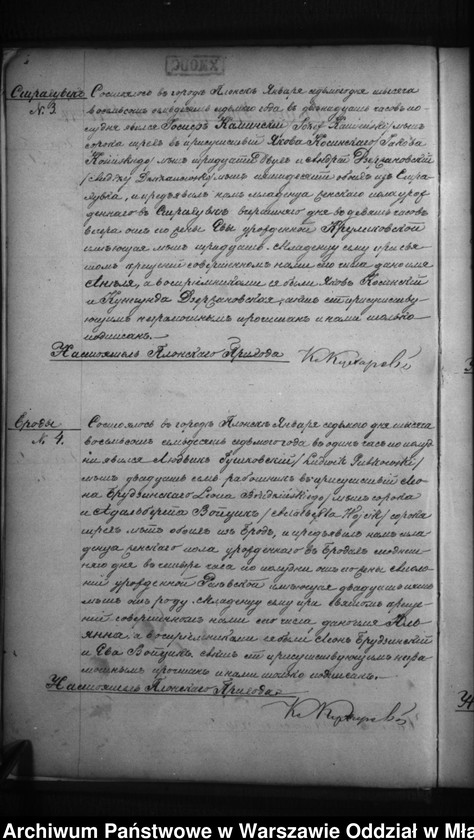 Страшувекъ
N. 3.
Состоялось въ городѣ Плонскѣ Января седьмого дня тысяча
восемьсотъ семьдесятъ седьмого года въ двѣнадцать часовъ по
полудни явился Іосифъ Каминскій /Józef Kamiński/ лѣтъ
сорока трехъ въ присутствіи Якова Косинскаго /Jakóba
Kosińskiego/ лѣтъ тридцати двухъ и Андрея Держановскій
лѣтъ пятидесяти обоихъ изъ Страш
увка, и предъявилъ намъ младенца женскаго пола урож
деннаго въ Страшувкѣ вчерашняго дня въ девять часовъ
вечера отъ его жены Евы урожденной Круликовской
имѣющая лѣтъ тридцать. Младенцу сему при свя
томъ крещеніи совершенномъ нами сего числа дано имя
Анеля, а воспріемниками его были Яковъ Косинскій
и Кунгунда Держановская; актъ сей присутству
ющимъ неграмотнымъ прочитанъ и нами только
подписанъ.
Настоятель Плонскаго Прихода
Броды
N. 4.
Состоялось въ городѣ Плонскѣ Января седьмого дня тысяча
восемьсотъ семьдесятъ седьмого года въ одинъ часъ по полуд
ни явился Людвикъ
лѣтъ двадцать семь работникъ въ присутствіи Лео
на Брудзинскаго /Leona Brudzińskiego/ лѣтъ сорока
и Адальберта Войцикъ /Wojcik/ сорока
трехъ лѣтъ обоихъ изъ Бродъ, и предъявилъ намъ мла
денца женскаго пола урожденнаго въ Бродахъ сегодняш
няго дня въ четыре часа по полудни отъ его жены
урожденной имѣющая двадцать
лѣтъ отъ роду. Младенцу сему при святомъ креще
ніи совершенномъ нами сего числа дано имя Ма
ріянна, а воспріемниками его были Леонъ Брудзинскій
и Ева Войцикъ. Актъ сей присутствующимъ негра
мотнымъ прочитанъ и нами только подписанъ.
Настоятель Плонскаго Прихода
Archiwum Państwowe w Warszawie Oddział w Mła